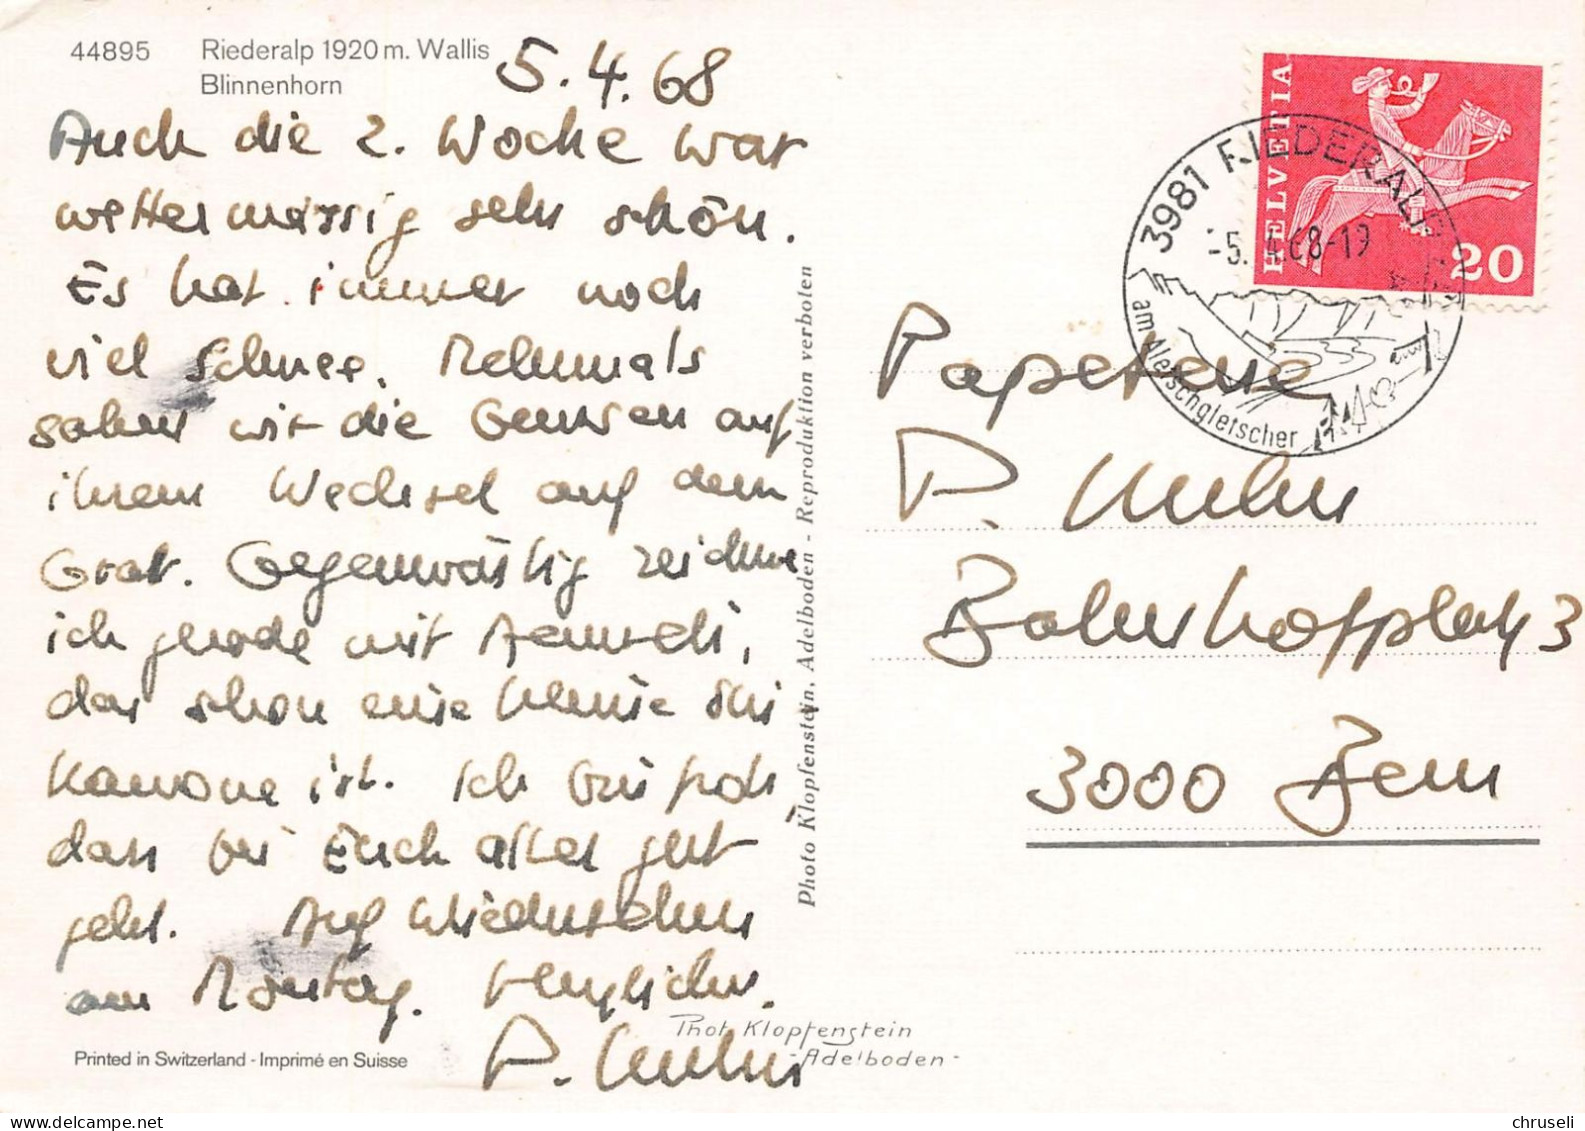 44895 Riederalp 1920 m. Wallis
Blinnenhorn
5.4.68
Auch die 2. Woche war
wettermässig sehr schön.
Es hat immer noch
viel Schnee. Mehrmals
sahen wir die Gemsen auf
ihrem Wechsel auf dem
Grat. Gegenwärtig zeichne
ich gerade mit
das schon eine kleine Ski
Kanone ist. Ich bin froh,
dass bei Euch alles gut
geht. Auf Wiedersehen
am Montag. Herzlichst.
P.
Printed in Switzerland - Imprimé en Suisse
Phot. Klopfenstein
- Adelboden -
Photo Klopfenstein, Adelboden - Reproduktion verboten
HELVETIA
20
3981 RIEDERALP
-5.4.68-19
am Aletschgletscher
Papeterie
P.
Bahnhofplatz 3
3000 Bern
chruseli